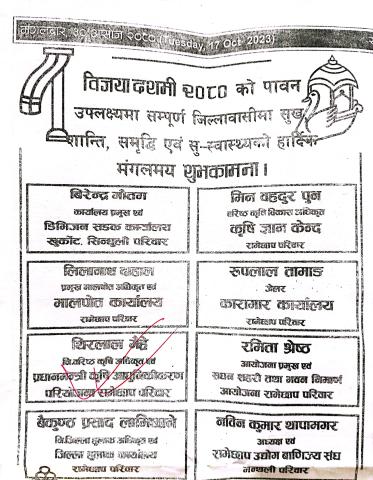 मंगलबार, ३० असोज २०८० (Tuesday, 17 Oct. 2023)
विजया दशमी २०८० को पावन
उपलक्ष्यमा सम्पूर्ण जिल्लावासीमा सुख
शान्ति, समृद्धि एवं सु-स्वास्थ्यको हार्दिक
मंगलमय शुभकामना।
बिरेन्द्र गौतम
कार्यालय प्रमुख एवं
डिभिजन सडक कार्यालय
खुर्कोट, सिन्धुली परिवार
मिन बहदुर पुन
बरिष्ठ कृषि विकास अधिकृत
कृषि ज्ञान केन्द
रामेछाप परिवार
लिलानाथ दाहाल
प्रमुख मालपोत अधिकृत एवं
मालपोत कार्यालय
रामेछाप परिवार
रुपलाल तामाङ
जेलर
कारागार कार्यालय
रामेछाप परिवार
थिरलाल
नि.बरिष्ठ कृषि अधिकृत एवं
प्रधानमन्त्री कृषि आधुनिकीकरण
परियोजना रामेछाप परिवार
रमिता श्रेष्ठ
आयोजना प्रमुख एवं
सघन शहरी तथा भवन निमार्ण
आयोजना रामेछाप परिवार
बैकुण्ठ प्रसाद लामिछाने
नि.जिल्ला हुलाक अधिकृत एवं
जिल्ला हुलाक कार्यालय
रामेछाप परिवार
नविन कुमार थापामगर
अध्यक्ष एवं
रामेछाप उद्योग बाणिज्य संघ
मन्थली परिवार